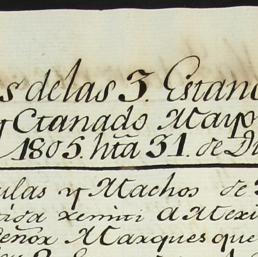 s de las 3. Estanc
y Ganado Mayo
1805. hta 31. de Di
ulas y Machos de
tida remiti a Mexi
eñor Marques que